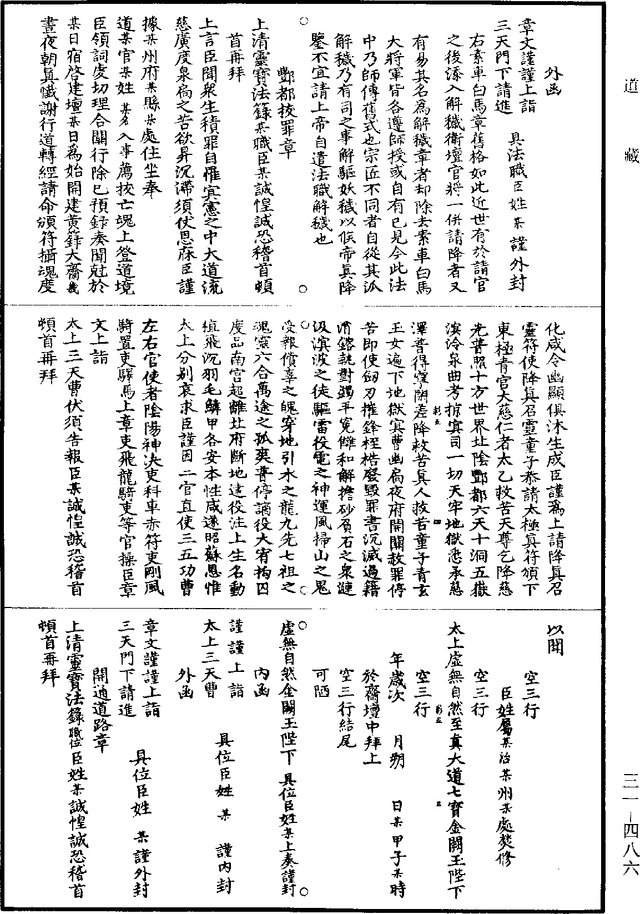 道藏
外函
章文謹謹上詣
三天門下請進　具法職臣姓某謹外封
右素車白馬章舊格如此近世有於請官
之後湊入解穢衛壇官將一併請降者又
有易其名為解穢章者却除去素車白馬
大將軍皆各遵師授或自有已見今此法
中乃師傳舊式也宗匠不同者自從其派
解穢乃有司之事解驅妖穢以俟帝真降
鑒不宜請上帝自遣法職解穢也
酆都拔罪章
上清靈寶法籙某職臣某誠惶誠恐稽首頓
首再拜
上言臣聞衆生積罪自惟冥憲之中大道流
慈廣度泉扃之苦欲昇沉滯須伏恩庥臣謹
據某州府某縣某處住坐奉
道某官某姓某名入事薦拔亡魂上登道境
臣領詞虔切理合關行除已預錄奏聞尅於
某日宿啓建壇某日為始開建黃籙大齋幾
晝夜朝真懺謝行道轉經請命頒符攝魂度
化咸令幽顯俱沐生成臣謹為上請降真召
靈符使降真召靈童子恭請太極真符頒下
東極青宮大慈仁者太乙救苦天尊乞降慈
光普照十方世界北陰酆都六天十洞五嶽
溟泠泉曲考掠冥司一切天牢地獄悉承慈
澤普得寬閑差降救苦真人救苦童子青玄
玉女遍下地獄冥曹幽扃夜府開關赦罪停
苦即使劒刃摧鋒桎梏廢毀罪書沉滅過籍
消鎔執對錫平冤讎和解擔砂負石之衆漣
汲溟波之徒驅雷役電之神運風掃山之鬼
受報償辜之魄穿地引水之龍九先七祖之
魂寰六合萬途之孤爽普停謫役大宥拘囚
度品南宮超離北府斷地逮役注上生名動
植飛沉羽毛鱗甲各安本性咸遂昭蘇恩惟
太上分别哀求臣謹因二官直使三五功曹
左右官使者陰陽神決吏科車赤符吏剛風
騎置吏驛馬上章吏飛龍騎吏等官操臣章
文上詣
太上三天曹伏須告報臣某誠惶誠恐稽首
頓首再拜
以聞
空三行
臣姓屬某治某州某處焚修
空三行
太上虛無自然至真大道七寶金闕玉陛下
空三行
年歲次　月朔　日某甲子某時
於齋壇中拜上
空三行結尾
可陋
虛無自然金闕玉陛下　具位臣姓某上奏謹封
內函
謹謹上詣
太上三天曹　具位臣姓　某　謹內封
外函
章文謹謹上詣
三天門下請進　具位臣姓　某謹外封
開通道路章
上清靈寶法籙職位臣姓某誠惶誠恐稽首
頓首再拜
三一—四八六